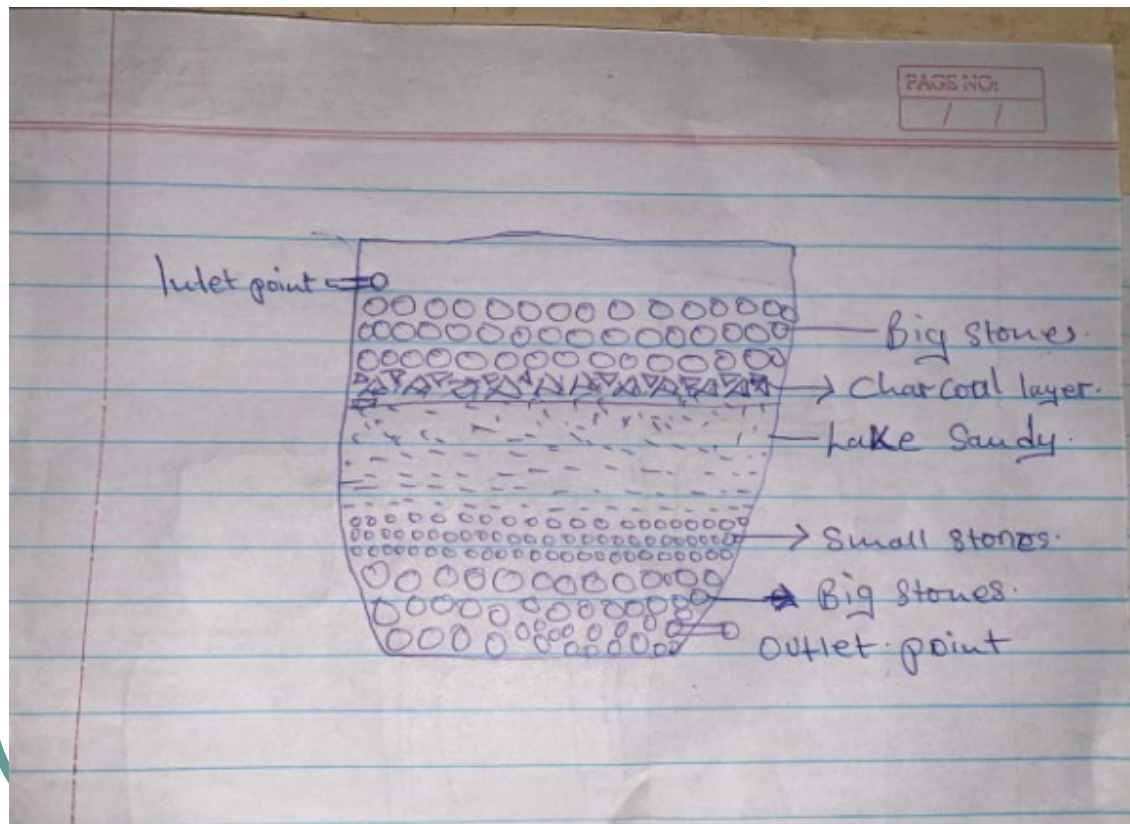 PAGE NO:
/ /
Inlet point
Big Stones.
Charcoal layer.
Lake Sandy.
Small Stones.
Big Stones.
Outlet point